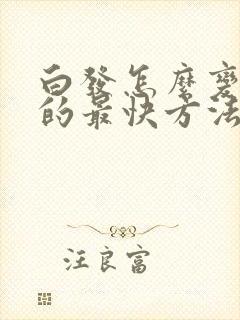 白發怎麼變
的最快方法
汪良富